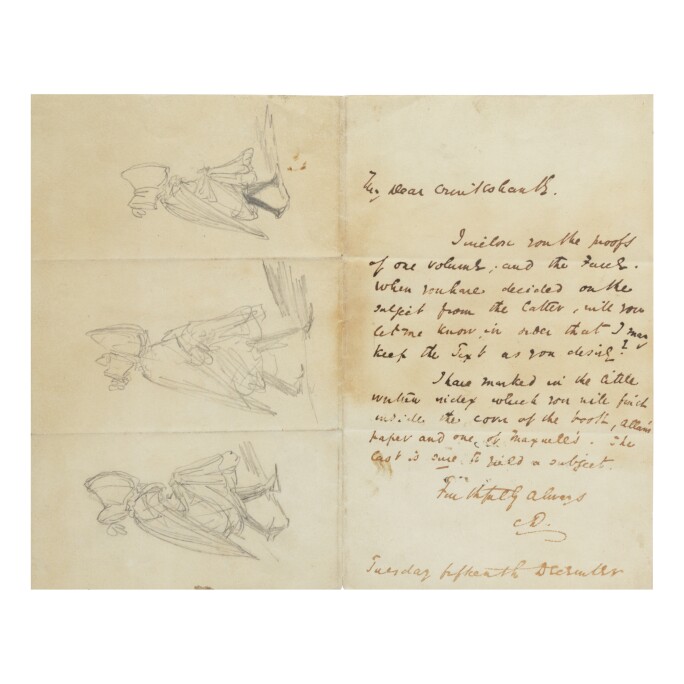 My Dear Cruikshank.
I inclose you the proofs
of one volume, and the Farce.
When you have decided on the
subject from the latter, will you
let me know, in order that I may
keep the Text as you desire?
I have marked in the little
written index which you will find
inside the cover of the book, Allan's
paper and one of Maxwell's. The
last is sure to yield a subject.
Faithfully always
CD.
Tuesday fifteenth December